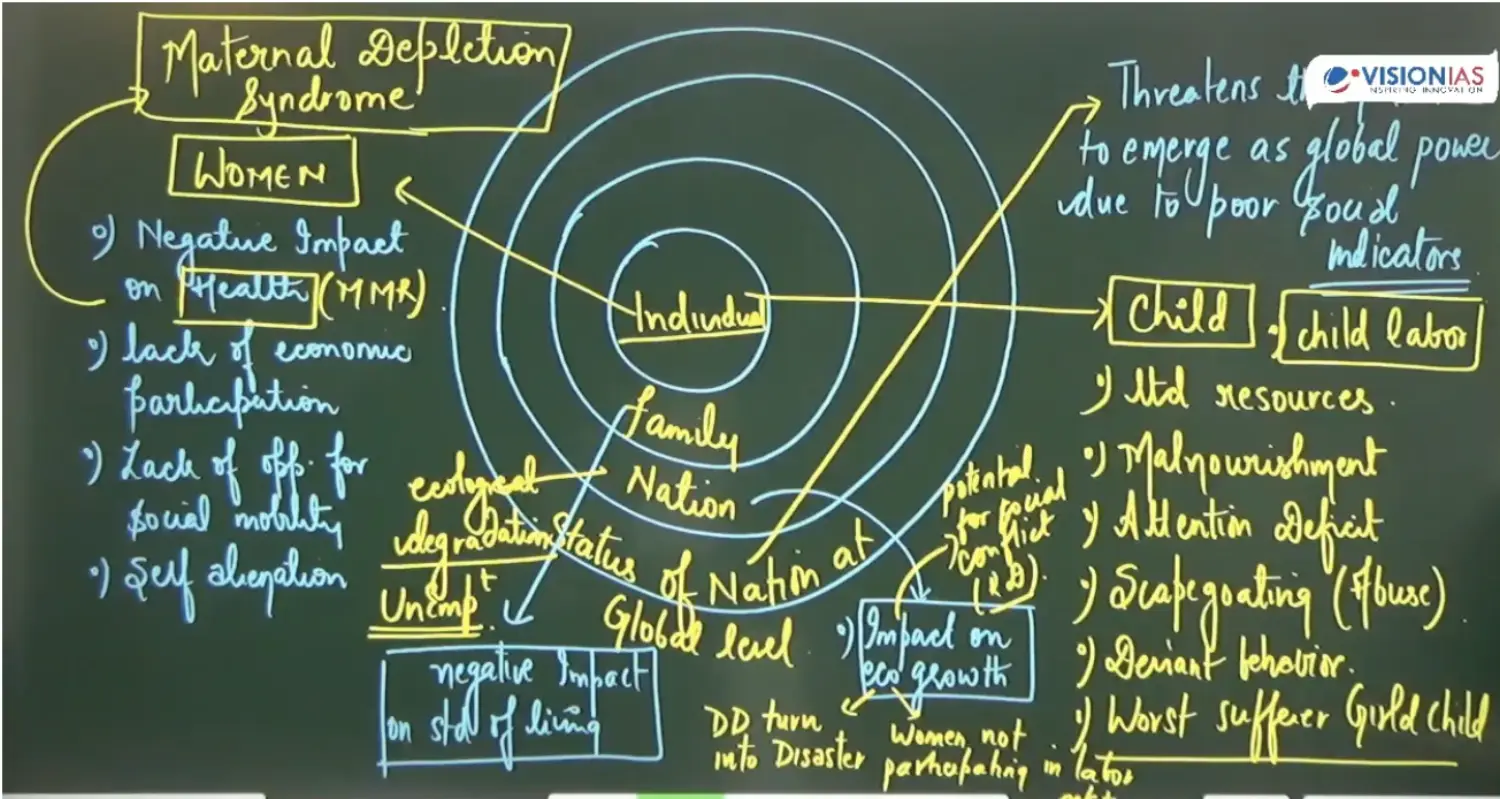 Maternal Depletion
Syndrome
WOMEN
•) Negative Impact
on Health (MMR)
•) lack of economic
participation
•) Lack of opp. for
social mobility
•) Self alienation
Individual
family
Nation
Status of Nation at
Global level
ecological
degradation
Unempt.
negative Impact
on std of living
potential
for social
conflict
•) Impact on
eco growth
DD turn
into Disaster
Women not
participating in labor
VISIONIAS
INSPIRING INNOVATION
Threatens
to emerge as global power
due to poor social
indicators
Child
•) child labor
•) ltd resources.
•) Malnourishment
•) Attention Deficit
•) Scapegoating (Abuse)
•) Deviant behavior.
•) Worst sufferer Girld Child